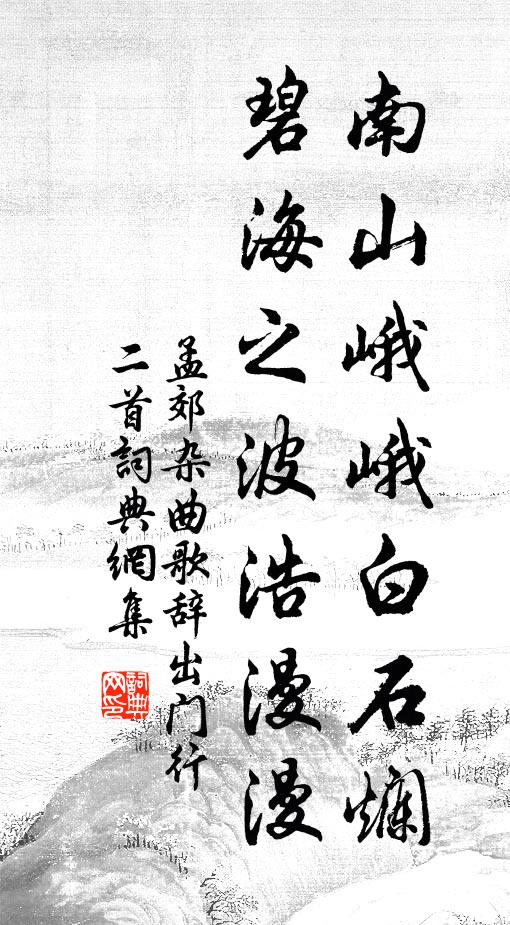 南山峨峨白石爛
碧海之波浩漫漫
孟郊杂曲歌辞出门行
二首詞典網集
詞典网印